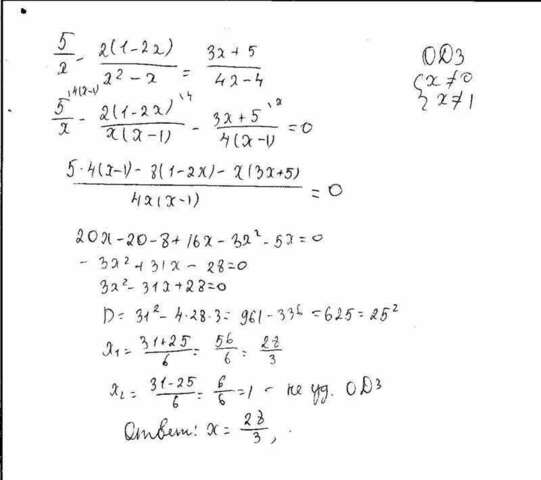 5/x - 2(1-2x)/(x² - x) = (3x+5)/(4x-4)
ОДЗ
{x ≠ 0
{x ≠ 1
5/x \4(x-1) - 2(1-2x)/(x(x-1)) \4 - (3x+5)/(4(x-1)) \x = 0
(5·4(x-1) - 8(1-2x) - x(3x+5))/(4x(x-1)) = 0
20x-20-8+16x-3x²-5x=0
-3x²+31x-28=0
3x²-31x+28=0
D = 31²-4·28·3 = 961-336 = 625 = 25²
x₁ = (31+25)/6 = 56/6 = 28/3
x₂ = (31-25)/6 = 6/6 = 1 - не уд. ОДЗ
Ответ: x = 28/3,.